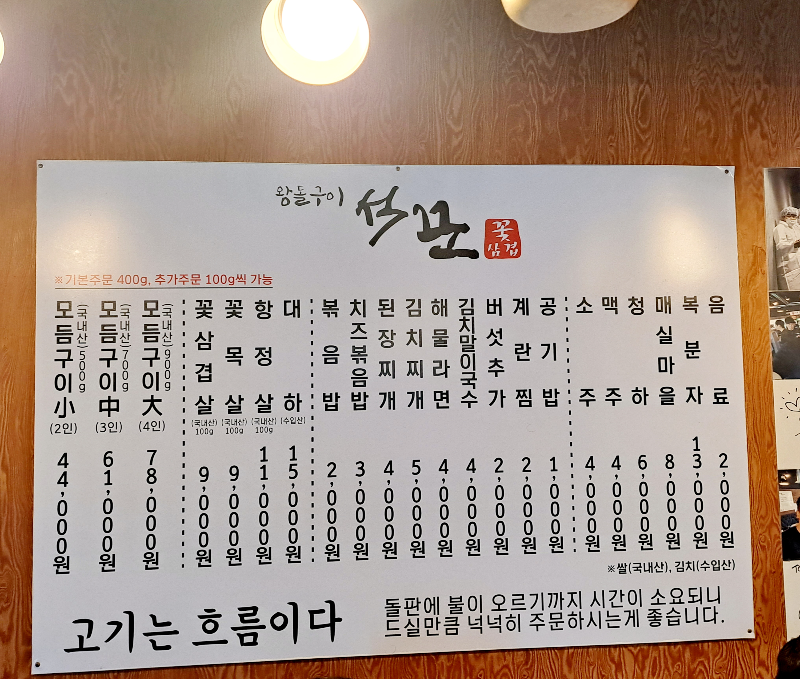 왕돌구이 석꾼 꽃삼겹
※기본주문 400g, 추가주문 100g씩 가능
모듬구이小 (국내산)500g (2인) 44,000원
모듬구이中 (국내산)700g (3인) 61,000원
모듬구이大 (국내산)900g (4인) 78,000원
꽃삼겹살 (국내산) 100g 9,000원
꽃목살 (국내산) 100g 9,000원
항정살 (국내산) 100g 11,000원
대하 (수입산) 15,000원
볶음밥 2,000원
치즈볶음밥 3,000원
된장찌개 4,000원
김치찌개 5,000원
해물라면 4,000원
김치말이국수 4,000원
버섯추가 2,000원
계란찜 2,000원
공기밥 1,000원
소주 4,000원
맥주 4,000원
청하 6,000원
매실마을 8,000원
복분자 13,000원
음료 2,000원
※쌀(국내산), 김치(수입산)
고기는 흐름이다
돌판에 불이 오르기까지 시간이 소요되니
드실만큼 넉넉히 주문하시는게 좋습니다.